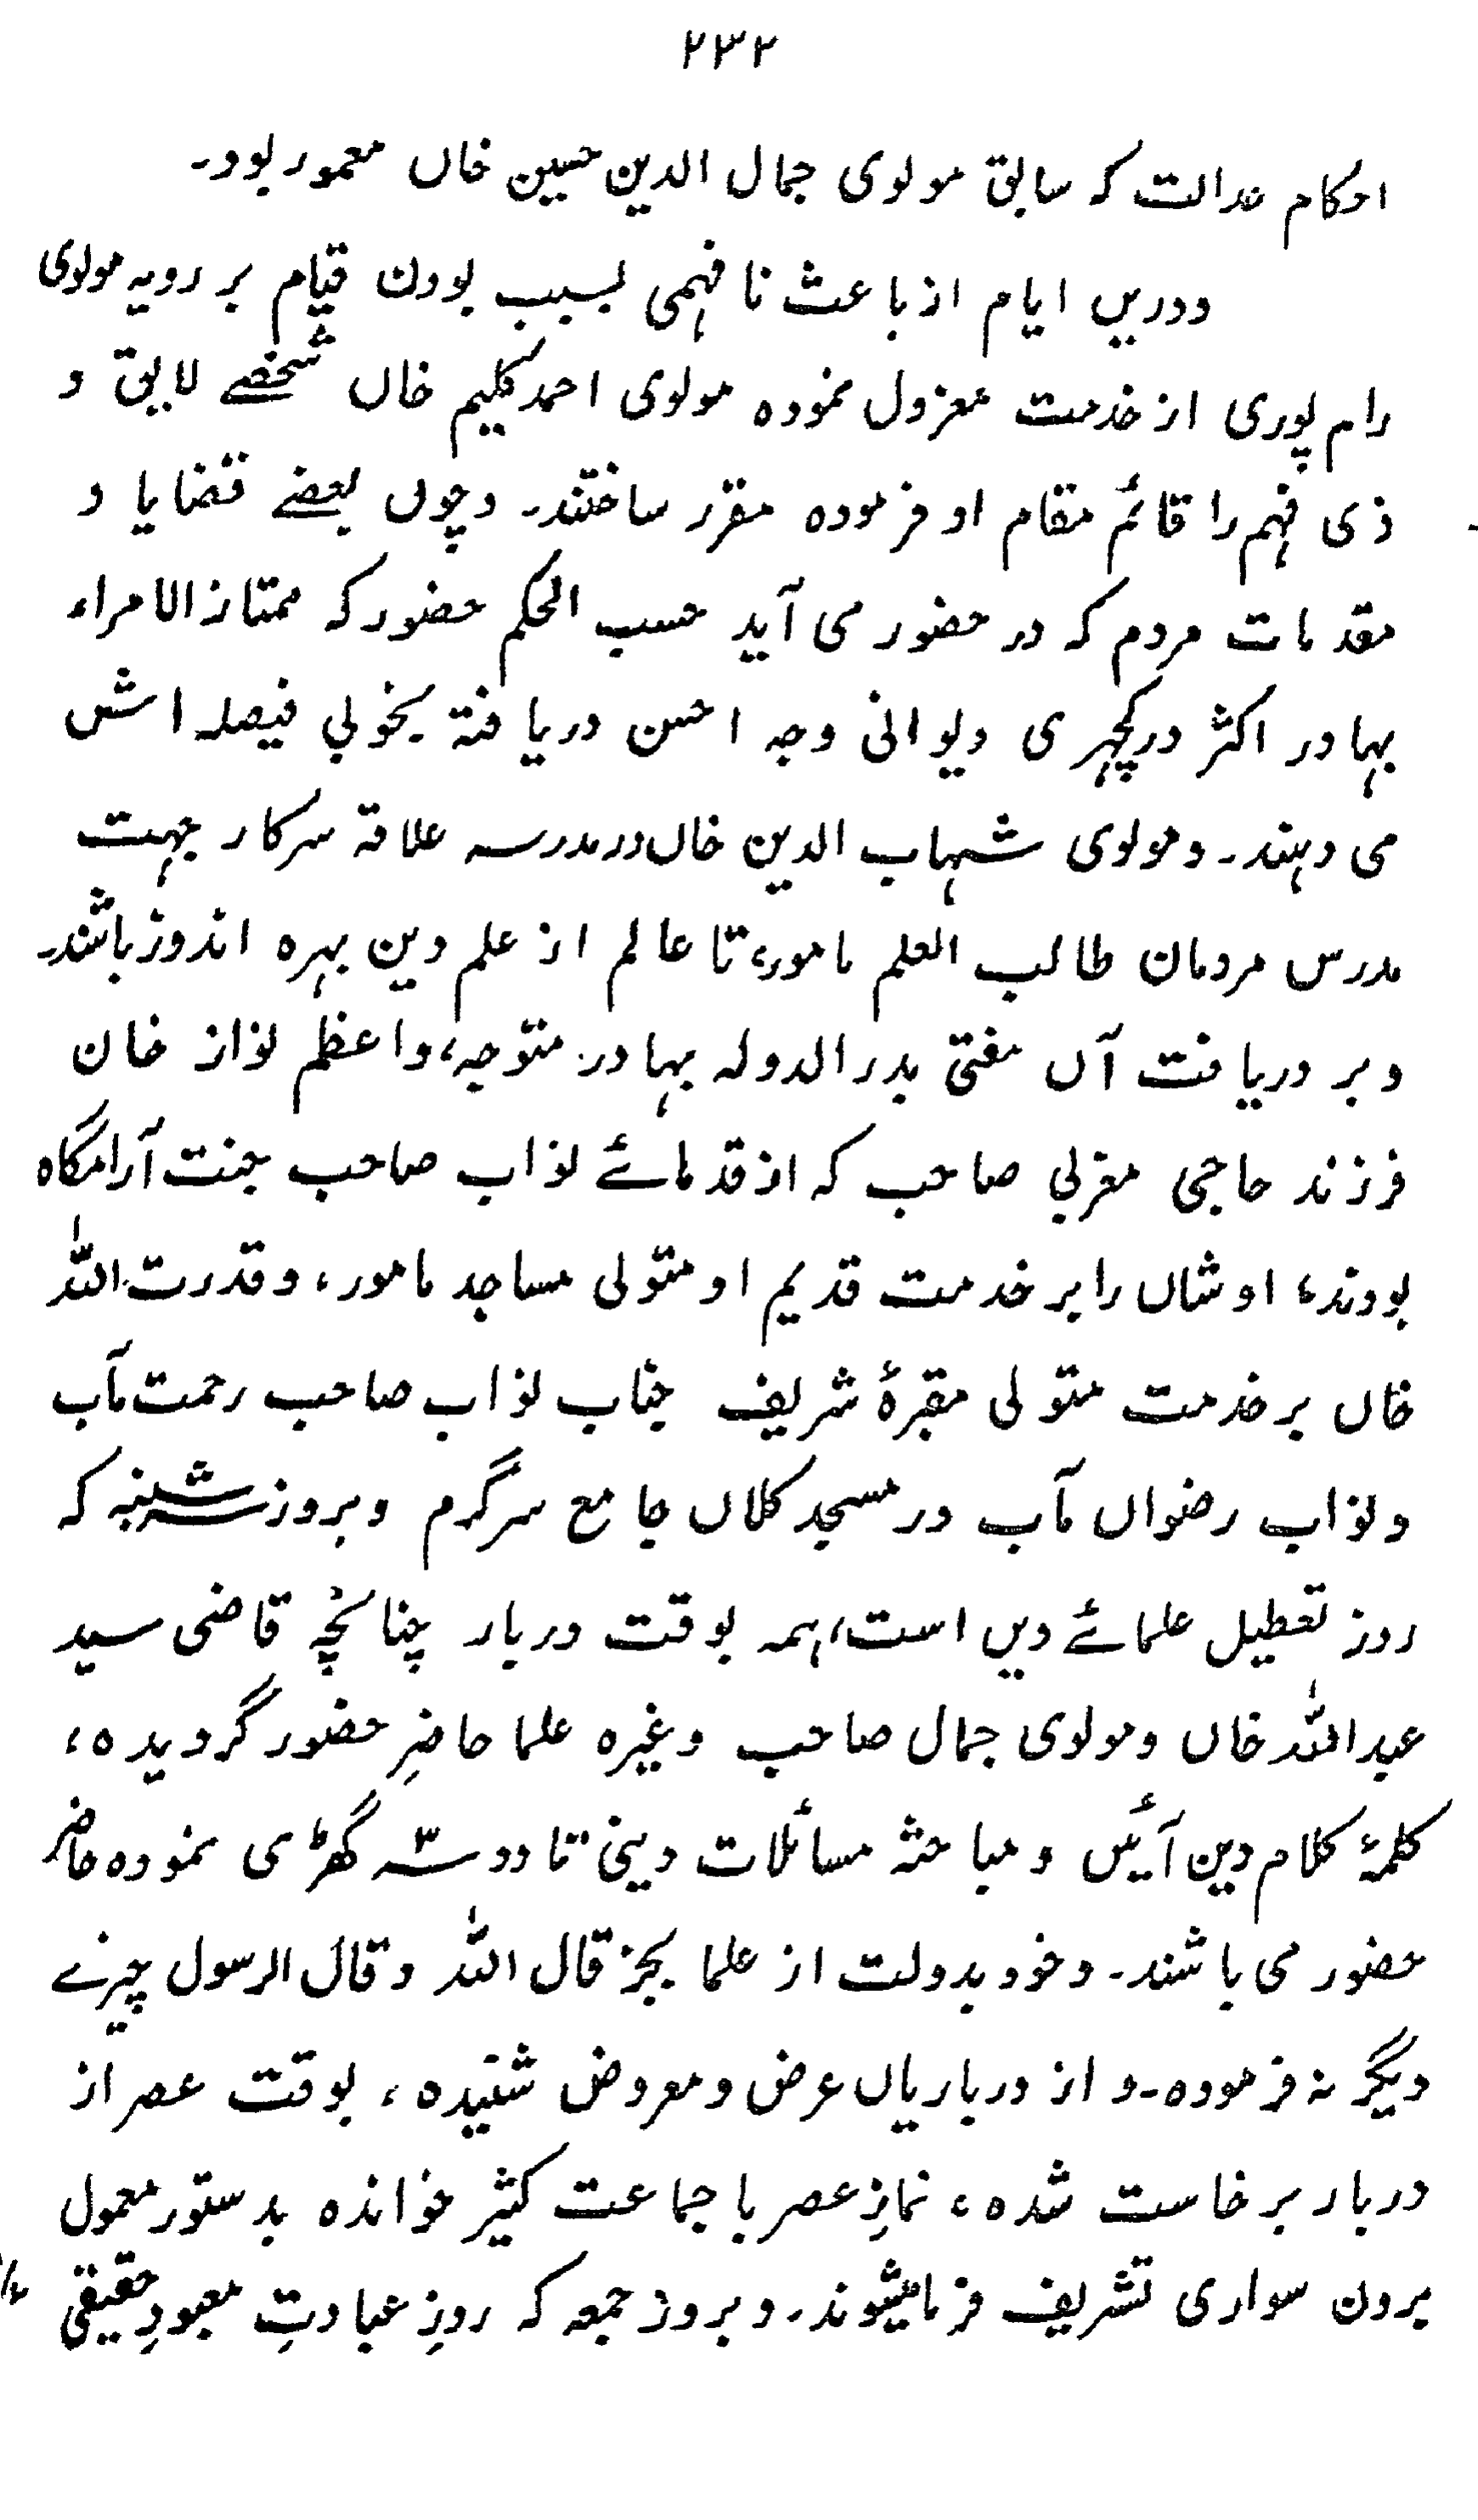 ۲۳۲
احکام عدالت کہ سابق مولوی جمال الدین حسین خاں معمور بود۔
ودریں ایام از باعث نا فہمی بسبب بودن قیام بر رویہ مولوی
رام پوری از خدمت معزول نموده مولوی احمد کلیم خاں شخصے لایق و
ذی فہم را قائم مقام او فرموده مقرر ساختند۔ وچوں بعضے قضایا و
مقدمات مردم کہ در حضور می آید حسب الحکم حضور کہ ممتاز الامراء
بہادر اکثر در کچہری دیوانی وجہ احسن دریافتہ بخوبی فیصلہ اش
می دہند۔ ومولوی شہاب الدین خاں در مدرسہ علاقہ سرکار جہت
مدرس مردمان طالب العلم مامور، تا عالم از علم دین بہره اندوز باشند۔
وبر دریافت آں مفتی بدر الدولہ بہادر متوجہ، واعظم نواز خان
فرزند حاجی مغربی صاحب کہ از قدمائے نواب صاحب جنت آرامگاه
بودند، اوشاں را بر خدمت قدیم او متولی مساجد مامور، وقدرت اللہ
خاں بر خدمت متولی مقبرۂ شریف جناب نواب صاحب رحمت مآب
ونواب رضواں مآب در مسجد کلاں جامع سرگرم وبروز سہ شنبہ کہ
روز تعطیل علمائے دیں است، ہمہ بوقت دربار چنانچہ قاضی سید
عبد اللہ خاں ومولوی جمال صاحب وغیره علما حاضرِ حضور گردیده،
کلمۂ کلام دین آئیں ومباحثہ مسائلات دینی تا دو سہ گھڑی نموده حاضر
حضور می باشند۔ وخود بدولت از علما بجز قال اللہ وقال الرسول چیزے
دیگر نہ فرموده۔ و از درباریاں عرض ومعروض شنیده، بوقت عصر از
دربار برخاست شده، نمازِ عصر با جماعت کثیر خوانده بدستور معمول
برون سواری تشریف فرما میشوند۔ وبروز جمعہ کہ روزِ عبادتِ معبودِ حقیقی